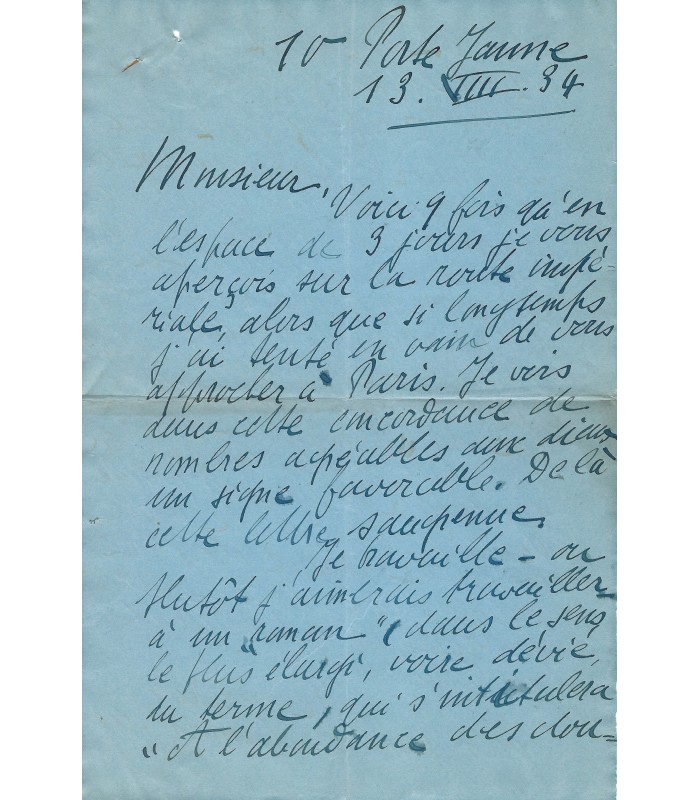 10 Porte Jaune
13. VIII. 34
Monsieur,
Voici 9 fois qu'en
l'espace de 3 jours je vous
aperçois sur la route impé-
riale, alors que si longtemps
j'ai tenté en vain de vous
approcher à Paris. Je vois
dans cette concordance de
nombres agréables aux dieux
un signe favorable. De là
cette lettre saugrenue.
Je travaille – ou
plutôt j'aimerais travailler
à un "roman" (dans le sens
le plus élargi, voire dévié,
du terme, qui s'intitulera
"A l'abondance des dou-